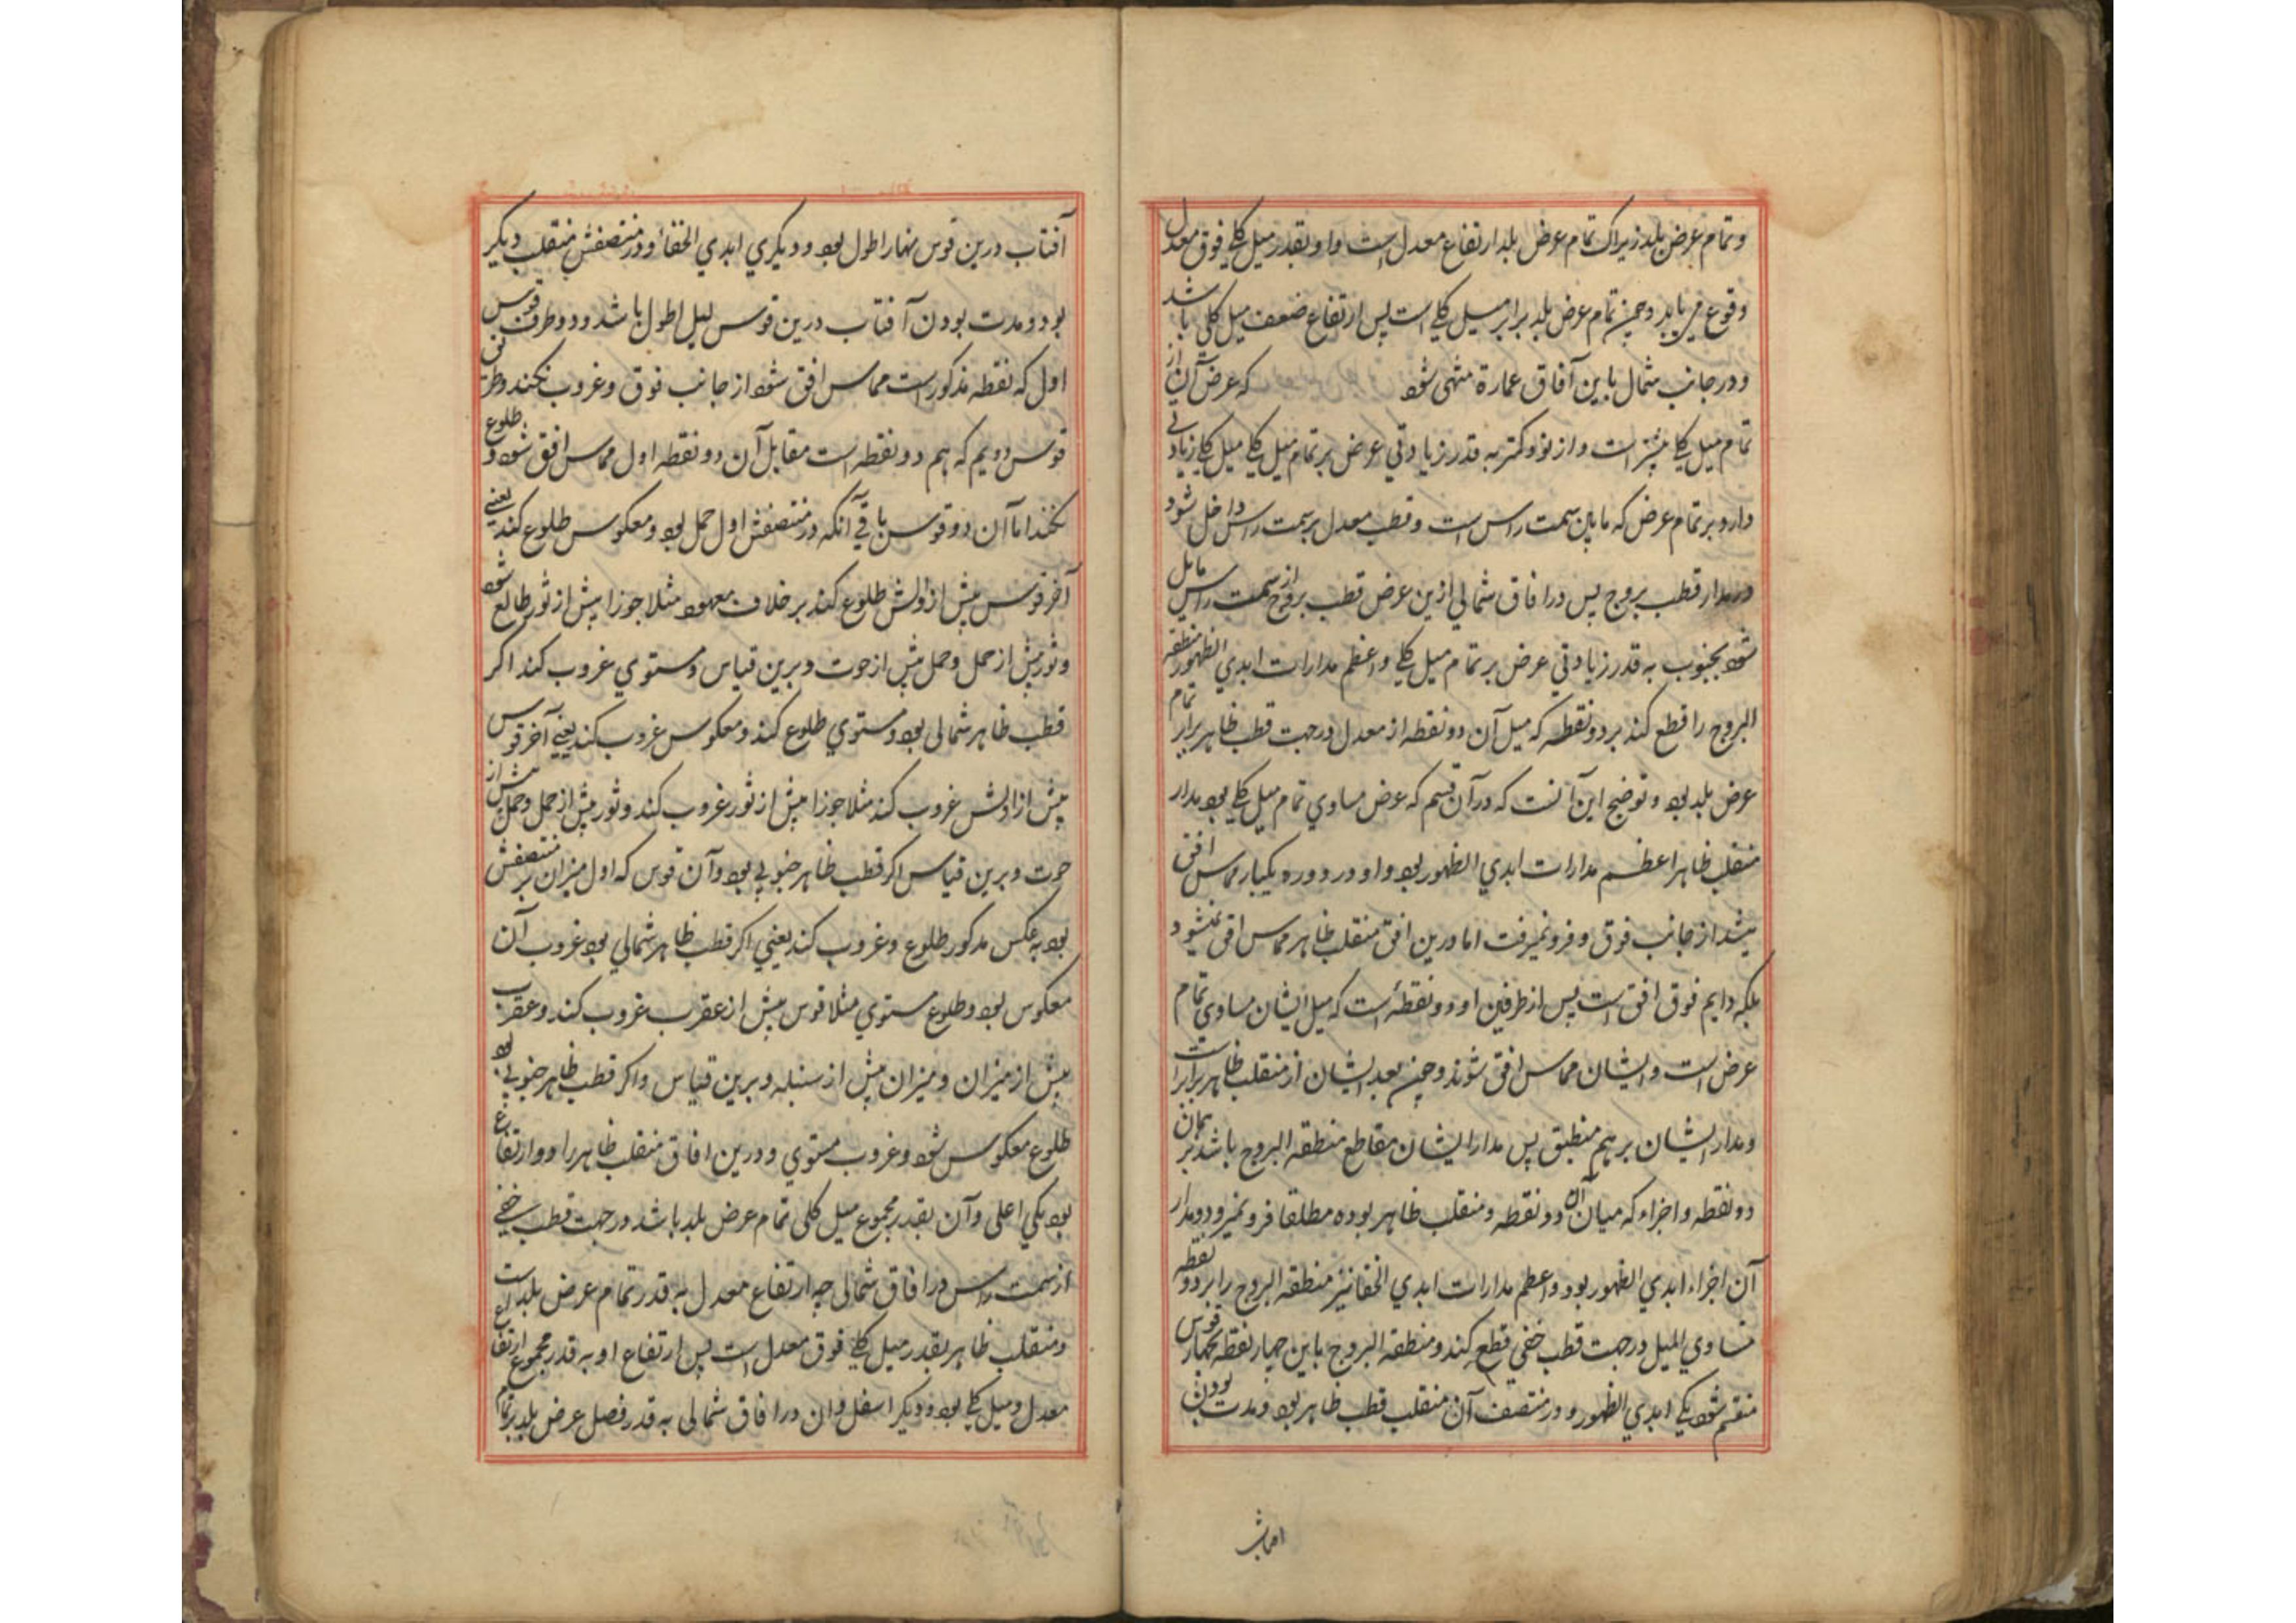 و تمام عرض بلد زیراکه تمام عرض بلد ارتفاع معدل است و او بقدر میل کلے فوق معدل
وقوع می یابد و چون تمام عرض بلد برابر میل کلے است پس ارتفاع ضعف میل کلی باشد
و در جانب شمال باین آفاق عمارة منتهی شود که عرض آن از
تمام میل کلے بیشتر است و از نود کمتر به قدر زیادتی عرض بر تمام میل کلے میل کلے زیادتی
دارد بر تمام عرض که مابین سمت راس است و قطب معدل بر سمت راس داخل شود
در مدار قطب بروج پس در افاق شمالی ازین عرض قطب بروج از سمت راس مایل
شود بجنوب به قدر زیادتی عرض بر تمام میل کلے و اعظم مدارات ابدي الظهور منطقة
البروج را قطع کند بر دو نقطه که میل آن دو نقطه از معدل در جهت قطب ظاهر برابر تمام
عرض بلد بود و توضیح این آنست که در آن قسم که عرض مساوي تمام میل کلے بود مدار
منقلب ظاهر اعظم مدارات ابدي الظهور بود و او در دوره یکبار مماس افق
میشد از جانب فوق و فرو نمیرفت اما درین افق منقلب ظاهر مماس افق نمیشود
بلکه دایم فوق افق است پس از طرفین او دو نقطه است که میل ایشان مساوي تمام
عرض است و ایشان مماس افق شوند و چون بعد ایشان از منقلب ظاهر برابر است
و مدار ایشان بر هم منطبق پس مدار ایشان مقاطع منطقه البروج باشد بر همان
دو نقطه و اجزاء که میان آن دو نقطه و منقلب ظاهر بوده مطلقا فرو نمیرود و مدار
آن اجزاء ابدي الظهور بود و اعظم مدارات ابدي الخفا نیز منطقه البروج را بر دو نقطه
مساوي المیل در جهت قطب خفی قطع کند و منطقه البروج باین چهار نقطه بچهار قوس
منقسم شود یکے ابدي الظهور و در منتصف آن منقلب قطب ظاهر بود و مدت بودن
آفتاب درین قوس نهار اطول بود و دیکري ابدي الخفا و در منتصفش منقلب دیکر
بود و مدت بودن آفتاب درین قوس لیل اطول باشد و دو طرف قوس
اول که نقطه مذکور است مماس افق شود از جانب فوق و غروب نکند و طرفین
قوس دویم که هم دو نقطه است مقابل آن دو نقطه اول مماس افق شود و طلوع
نکند اما آن دو قوس باقے آنکه در منتصفش اول حمل بود و معکوس طلوع کند یعنے
آخر قوس پیش از اولش طلوع کند بر خلاف معهود مثلا جوزا پیش از ثور طالع شود
و ثور پیش از حمل و حمل پیش از حوت و برین قیاس و مستوي غروب کند اکر
قطب ظاهر شمالی بود و مستوي طلوع کند و معکوس غروب کند یعنے آخر قوس
پیش از اولش غروب کند مثلا جوزا پیش از ثور غروب کند و ثور پیش از حمل و حمل پیش از
حوت و برین قیاس اکر قطب ظاهر جنوبی بود و آن قوس که اول میزان بر منتصفش
بود به عکس مذکور طلوع و غروب کند یعنی اکر قطب ظاهر شمالی بود غروب آن
معکوس بود و طلوع مستوي مثلا قوس پیش از عقرب غروب کند و عقرب
پیش از میزان و میزان پیش از سنبله و برین قیاس و اکر قطب ظاهر جنوبی بود
طلوع معکوس شود و غروب مستوي و درین افاق منقلب ظاهر را دو ارتفاع
بود یکی اعلی و آن بقدر مجموع میل کلی تمام عرض بلد باشد در جهت قطب خفے
از سمت راس در افاق شمالی چه ارتفاع معدل به قدر تمام عرض بلد است
و منقلب ظاهر بقدر میل کلے فوق معدل است پس ارتفاع او به قدر مجموع ارتفاع
معدل و میل کلے بود و دیکر اسفل و ان در افاق شمالی به قدر فصل عرض بلد بر تمام